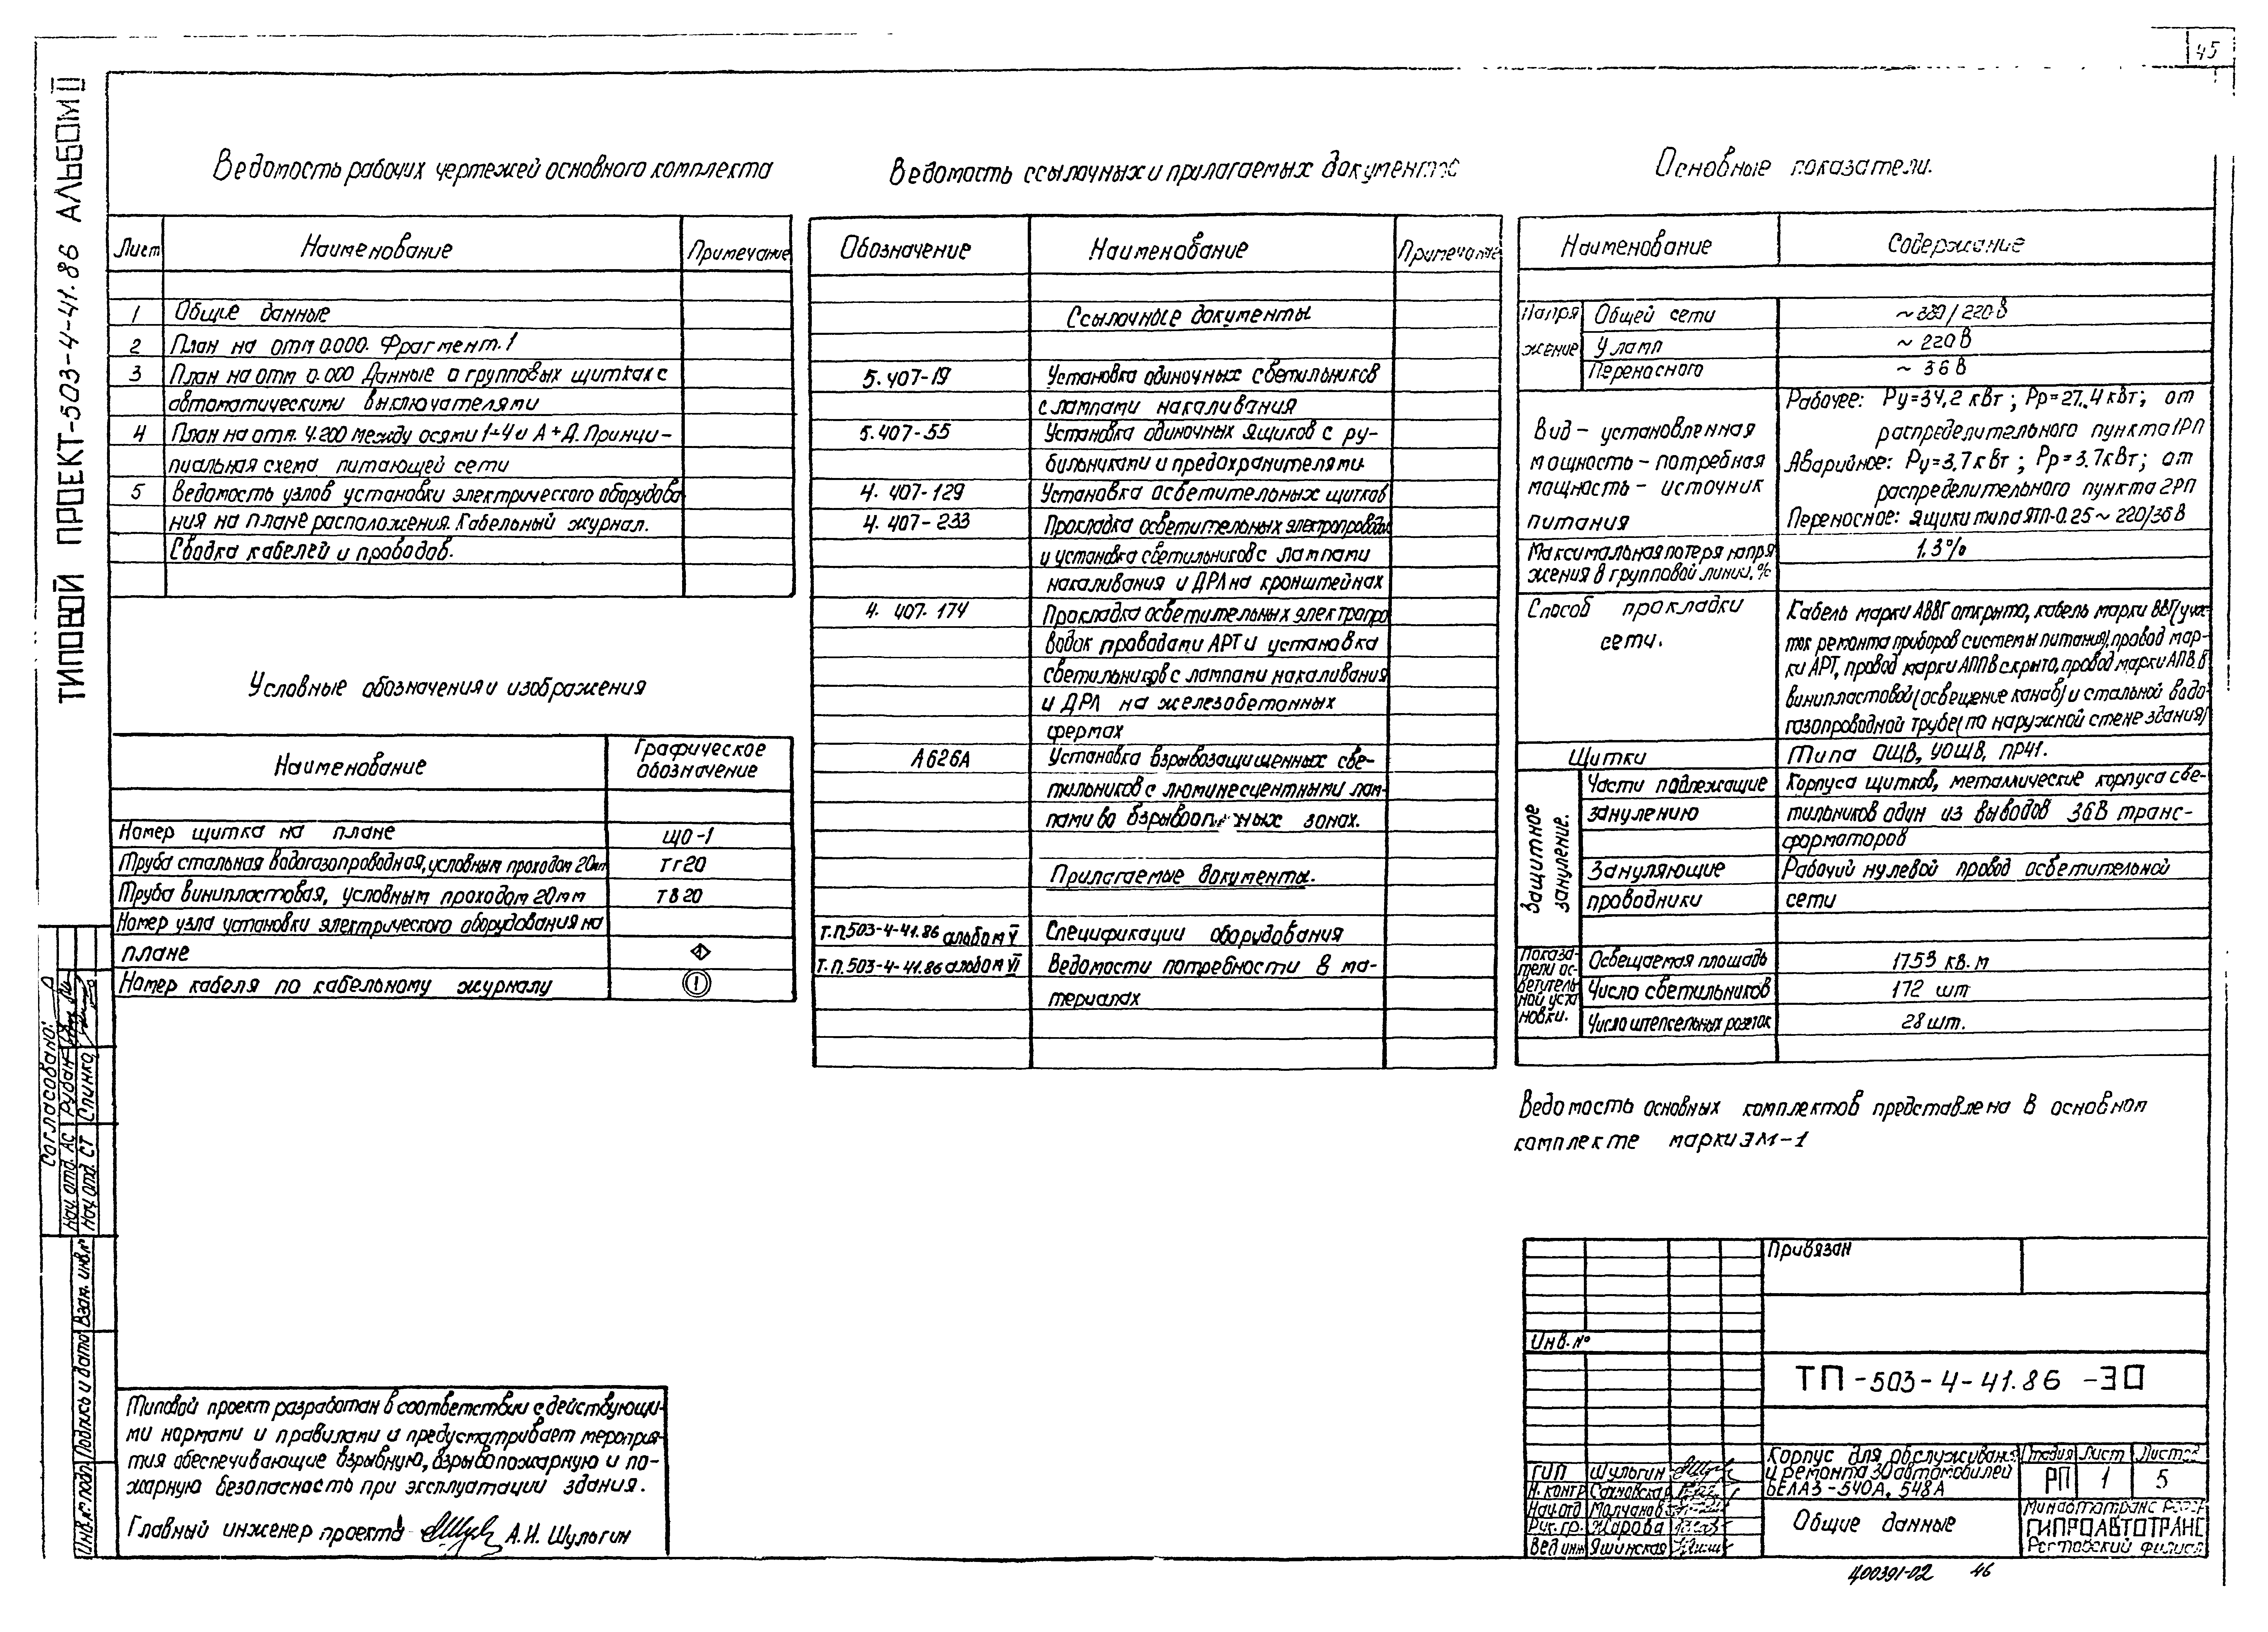 45
ТИПОВОЙ ПРОЕКТ-503-4-41.86 АЛЬБОМ II
Ведомость рабочих чертежей основного комплекта
Лист Наименование Примечание
1 Общие данные
2 План на отм 0.000. Фрагмент.1
3 План на отм 0.000 Данные о групповых щитках с
автоматическими выключателями
4 План на отм. 4.200 между осями 1÷4 и А÷Д. Принци-
пиальная схема питающей сети
5 Ведомость узлов установки электрического оборудова
ния на плане расположения. Кабельный журнал.
Сводка кабелей и проводов.
Условные обозначения и изображения
Наименование Графическое
обозначение
Номер щитка на плане ЩО-1
Труба стальная водогазопроводная, условным проходом 20мм Тг20
Труба винипластовая, условным проходом 20мм Тв20
Номер узла установки электрического оборудования на
плане 1
Номер кабеля по кабельному журналу 1
Ведомость ссылочных и прилагаемых документов
Обозначение Наименование Примечание
Ссылочные документы
5.407-19 Установка одиночных светильников
с лампами накаливания
5.407-55 Установка одиночных ящиков с ру-
бильниками и предохранителями.
4.407-129 Установка осветительных щитков
4.407-233 Прокладка осветительных электропроводок
и установка светильников с лампами
накаливания и ДРЛ на кронштейнах
4.407-174 Прокладка осветительных электропро
водок проводами АРТ и установка
светильников с лампами накаливания
и ДРЛ на железобетонных
фермах
А626А Установка взрывозащищенных све-
тильников с люминесцентными лам-
пами во взрывоопасных зонах.
Прилагаемые документы.
Т.П503-4-41.86 альбом V Спецификации оборудования
Т.П.503-4-41.86 альбом VI Ведомости потребности в ма-
териалах
Основные показатели.
Наименование Содержание
Напря Общей сети ~380/220В
жение У ламп ~220В
Переносного ~36В
Рабочее: Ру=34,2 кВт; Рр=27,4 кВт; от
Вид - установленная распределительного пункта 1РП
мощность - потребная Аварийное: Ру=3,7 кВт; Рр=3.7кВт; от
мощность - источник распределительного пункта 2РП
питания Переносное: ящики типа ЯТП-0.25~220/36В
Максимальная потеря напря 1.3%
жения в групповой линии, %
Способ прокладки Кабель марки АВВГ открыто, кабель марки ВВГ(учас-
сети. ток ремонта приборов системы питания), провод мар-
ки АРТ, провод марки АППВ скрыто, провод марки АПВ в
винипластовой (освещение канав) и стальной водо-
газопроводной трубе (по наружной стене здания)
Щитки Типа ОЩВ, УОЩВ, ПР41.
Защитное
зануление.
Части подлежащие Корпуса щитков, металлические корпуса све-
занулению тильников один из выводов 36В транс-
форматоров
Зануляющие Рабочий нулевой провод осветительной
проводники сети
Показа-
тели ос-
ветитель
ной уста
новки.
Освещаемая площадь 1753 кв.м
Число светильников 172 шт
Число штепсельных розеток 28 шт.
Ведомость основных комплектов представлена в основном
комплекте марки ЭМ-1
Согласовано:
Нач. отд. АС Рудан
Нач. отд. СТ Спинко
Взам. инв.№
Подпись и дата
Инв.№ подл.
Типовой проект разработан в соответствии с действующи-
ми нормами и правилами и предусматривает мероприя-
тия обеспечивающие взрывную, взрывопожарную и по-
жарную безопасность при эксплуатации здания.
Главный инженер проекта А.И. Шульгин
Привязан
Инв.№
ТП-503-4-41.86 -ЭО
ГИП Шульгин
Н. контр Сахновская
Нач отд Молчанов
Рук. гр. Жарова
Вед инж Яшинская
Корпус для обслуживания
и ремонта 30 автомобилей
БЕЛАЗ-540А, 548А
Стадия Лист Листов
РП 1 5
Общие данные
Минавтотранс РСФСР
ГИПРОАВТОТРАНС
Ростовский филиал
400391-02 46